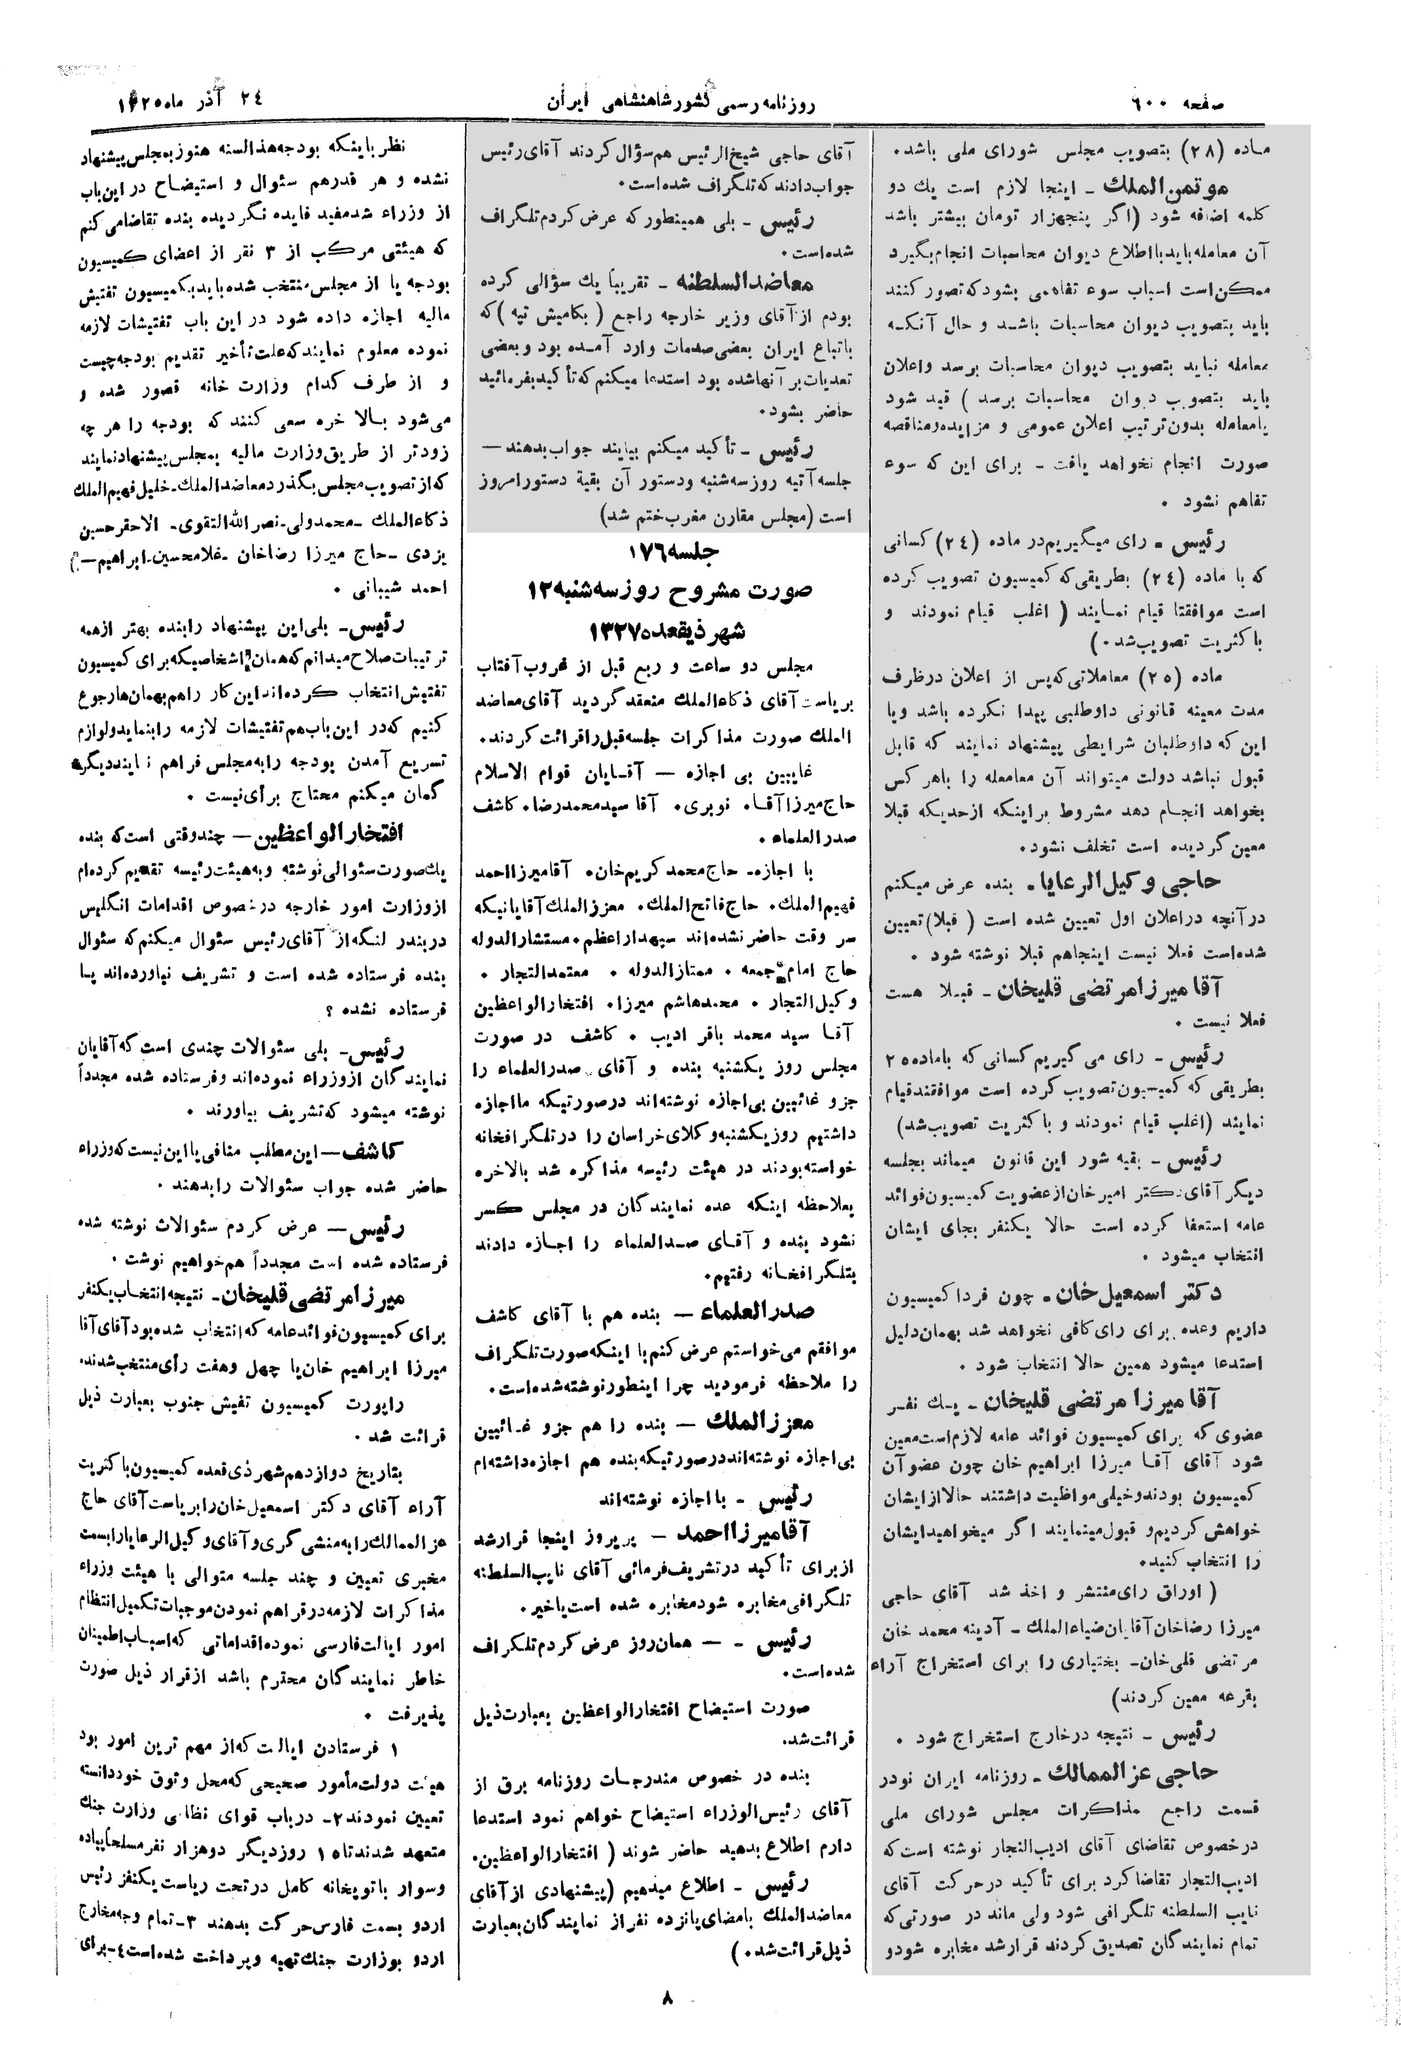 صفحه ۶۰۰
روزنامه رسمی کشور شاهنشاهی ایران
۲۴ آذر ماه ۱۳۲۵
ماده (۲۸) بتصویب مجلس شورای ملی باشد.
موتمن‌الملک ـ اینجا لازم است یک دو
کلمه اضافه شود (اگر پنجهزار تومان بیشتر باشد
آن معامله باید با اطلاع دیوان محاسبات انجام بگیرد
ممکن است اسباب سوء تفاهمی بشود که تصور کنند
باید بتصویب دیوان محاسبات باشد و حال آنکه
معامله نباید بتصویب دیوان محاسبات برسد و اعلان
باید بتصویب دیوان محاسبات برسد) قید شود
یا معامله بدون ترتیب اعلان عمومی و مزایده و مناقصه
صورت انجام نخواهد یافت ـ برای این که سوء
تفاهم نشود .
رئیس ـ رای میگیریم در ماده (۲۴) کسانی
که با ماده (۲۴) بطریقی که کمیسیون تصویب کرده
است موافقند قیام نمایند ( اغلب قیام نمودند و
با کثریت تصویب شد.)
ماده (۲۵) معاملاتی که پس از اعلان در ظرف
مدت معینه قانونی داوطلبی پیدا نکرده باشد ویا
این که داوطلبان شرایطی پیشنهاد نمایند که قابل
قبول نباشد دولت میتواند آن معامله را باهر کس
بخواهد انجام دهد مشروط براینکه از حدیکه قبلا
معین گردیده است تخلف نشود.
حاجی وکیل‌الرعایا. بنده عرض میکنم
در آنچه در اعلان اول تعیین شده است ( قبلا) تعیین
شده است فعلا نیست اینجا هم قبلا نوشته شود .
آقا میرزا مرتضی قلیخان ـ قبلا هست
فعلا نیست .
رئیس ـ رای می گیریم کسانی که با ماده ۲۵
بطریقی که کمیسیون تصویب کرده است موافقند قیام
نمایند (اغلب قیام نمودند و با کثریت تصویب شد)
رئیس ـ بقیه شور این قانون میماند بجلسه
دیگر آقای دکتر امیر خان از عضویت کمیسیون فوائد
عامه استعفا کرده است حالا یکنفر بجای ایشان
انتخاب میشود .
دکتر اسمعیل خان ـ چون فردا کمیسیون
داریم وعده برای رای کافی نخواهد شد بهمان دلیل
استدعا میشود همین حالا انتخاب شود .
آقا میرزا مرتضی قلیخان ـ یک نفر
عضوی که برای کمیسیون فوائد عامه لازم است معین
شود آقای آقا میرزا ابراهیم خان چون عضو آن
کمیسیون بودند و خیلی مواظبت داشتند حالا از ایشان
خواهش کردیم و قبول مینمایند اگر میخواهید ایشان
را انتخاب کنید.
( اوراق رای منتشر و اخذ شد آقای حاجی
میرزا رضاخان آقایان ضیاءالملک ـ آدینه محمد خان
مرتضی قلی خان ـ بختیاری را برای استخراج آراء
بقرعه معین کردند)
رئیس ـ نتیجه در خارج استخراج شود .
حاجی عزالممالک ـ روزنامه ایران نو در
قسمت راجع مذاکرات مجلس شورای ملی
در خصوص تقاضای آقای ادیب‌التجار نوشته است که
ادیب‌التجار تقاضا کرد برای تأکید در حرکت آقای
نایب السلطنه تلگرافی شود ولی ماند در صورتی که
تمام نمایندگان تصدیق کردند قرار شد مخابره شود و
آقای حاجی شیخ‌الرئیس هم سؤال کردند آقای رئیس
جواب دادند که تلگراف شده است.
رئیس ـ بلی همینطور که عرض کردم تلگراف
شده است .
معاضدالسلطنه ـ تقریباً یک سؤالی کرده
بودم از آقای وزیر خارجه راجع ( بکامیش تپه) که
باتباع ایران بعضی صدمات وارد آمده بود و بعضی
تعدیات بر آنها شده بود استدعا میکنم که تأکید بفرمائید
حاضر بشود.
رئیس ـ تأکید میکنم بیایند جواب بدهند —
جلسه آتیه روز سه شنبه و دستور آن بقیة دستور امروز
است (مجلس مقارن مغرب ختم شد)
جلسه ۱۷۶
صورت مشروح روز سه شنبه ۱۲
شهر ذیقعده ۱۳۲۷
مجلس دو ساعت و ربع قبل از غروب آفتاب
بریاست آقای ذکاءالملک منعقد گردید آقای معاضد
الملک صورت مذاکرات جلسه قبل را قرائت کردند.
غایبین بی اجازه — آقایان قوام الاسلام
حاج میرزا آقا. نوبری. آقا سید محمد رضا. کاشف
صدرالعلماء.
با اجازه ـ حاج محمد کریم خان. آقا میرزا احمد
فهیم‌الملک. حاج فاتح‌الملک. معزز‌الملک آقایانیکه
سر وقت حاضر نشده‌اند سپهدار اعظم. مستشارالدوله
حاج امام جمعه . ممتازالدوله . معتمدالتجار .
وکیل‌التجار . محمد هاشم میرزا. افتخارالواعظین
آقا سید محمد باقر ادیب . کاشف در صورت
مجلس روز یکشنبه بنده و آقای صدرالعلماء را
جزو غائبین بی‌اجازه نوشته‌اند در صورتیکه ما اجازه
داشتیم روز یکشنبه وکلای خراسان را در تلگرافخانه
خواسته بودند در هیئت رئیسه مذاکره شد بالاخره
بملاحظه اینکه عده نمایندگان در مجلس کسر
نشود بنده و آقای صدالعلماء را اجازه دادند
بتلگرافخانه رفتیم.
صدرالعلماء — بنده هم با آقای کاشف
موافقم می‌خواستم عرض کنم با اینکه صورت تلگراف
را ملاحظه فرمودید چرا اینطور نوشته شده است.
معززالملک — بنده را هم جزو غائبین
بی‌اجازه نوشته‌اند در صورتیکه بنده هم اجازه داشته‌ام
رئیس ـ با اجازه نوشته‌اند
آقا میرزا احمد — پریروز اینجا قرار شد
از برای تأکید در تشریف فرمائی آقای نایب‌السلطنه
تلگرافی مخابره شود مخابره شده است یا خیر.
رئیس ـ — همان روز عرض کردم تلگراف
شده است.
صورت استیضاح افتخارالواعظین بعبارت ذیل
قرائت شد.
بنده در خصوص مندرجات روزنامه برق از
آقای رئیس‌الوزراء استیضاح خواهم نمود استدعا
دارم اطلاع بدهید حاضر شوند ( افتخارالواعظین.
رئیس ـ اطلاع میدهیم (پیشنهادی از آقای
معاضدالملک بامضای پانزده نفر از نمایندگان بعبارت
ذیل قرائت شد.)
نظر باینکه بودجه هذالسنه هنوز به مجلس پیشنهاد
نشده و هر قدر هم سئوال و استیضاح در این باب
از وزراء شد مفید فایده نگردیده بنده تقاضا می کنم
که هیئتی مرکب از ۳ نفر از اعضای کمیسیون
بودجه یا از مجلس منتخب شده باید بکمیسیون تفتیش
مالیه اجازه داده شود در این باب تفتیشات لازمه
نموده معلوم نمایند که علت تأخیر تقدیم بودجه چیست
و از طرف کدام وزارت خانه قصور شده و
می‌شود بالاخره سعی کنند که بودجه را هر چه
زودتر از طریق وزارت مالیه بمجلس پیشنهاد نمایند
که از تصویب مجلس بگذرد معاضدالملک ـ خلیل فهیم‌الملک
ذکاءالملک ـ محمد ولی ـ نصرالله التقوی ـ الاحقر حسین
یزدی ـ حاج میرزا رضاخان ـ غلامحسین ـ ابراهیم —
احمد شیبانی .
رئیس ـ بلی این پیشنهاد را بنده بهتر از همه
ترتیبات صلاح میدانم که همان اشخاصیکه برای کمیسیون
تفتیش انتخاب کرده‌اند این کار را هم بهمان‌ها رجوع
کنیم که در این باب هم تفتیشات لازمه را بنماید و لوازم
تسریع آمدن بودجه را به مجلس فراهم نمایند دیگر
گمان میکنم محتاج برأی نیست .
افتخارالواعظین — چند وقتی است که بنده
یک صورت سئوالی نوشته و به هیئت رئیسه تقدیم کرده‌ام
از وزارت امور خارجه در خصوص اقدامات انگلیس
در بندر لنگه از آقای رئیس سئوال میکنم که سئوال
بنده فرستاده شده است و تشریف نیاورده‌اند یا
فرستاده نشده ؟
رئیس ـ بلی سئوالات چندی است که آقایان
نمایندگان از وزراء نموده‌اند و فرستاده شده مجدداً
نوشته میشود که تشریف بیاورند .
کاشف — این مطلب منافی با این نیست که وزراء
حاضر شده جواب سئوالات را بدهند .
رئیس — عرض کردم سئوالات نوشته شده
فرستاده شده است مجدداً هم خواهیم نوشت .
میرزا مرتضی قلیخان ـ نتیجه انتخاب یکنفر
برای کمیسیون فوائد عامه که انتخاب شده بود آقای آقا
میرزا ابراهیم خان با چهل و هفت رأی منتخب شدند.
راپورت کمیسیون تفیش جنوب بعبارت ذیل
قرائت شد .
بتاریخ دوازدهم شهر ذی قعده کمیسیون با کثریت
آراء آقای دکتر اسمعیل خان را بریاست آقای حاج
عزالممالک را به منشی گری و آقای وکیل‌الرعایا را بسمت
مخبری تعیین و چند جلسه متوالی با هیئت وزراء
مذاکرات لازمه در فراهم نمودن موجبات تکمیل انتظام
امور ایالت فارسی نموده اقداماتی که اسباب اطمینان
خاطر نمایندگان محترم باشد از قرار ذیل صورت
پذیرفت .
۱ فرستادن ایالت که از مهم ترین امور بود
هیئت دولت مأمور صحیحی که محل وثوق خود دانسته
تعیین نمودند ۲ ـ در باب قوای نظامی وزارت جنک
متعهد شدند تا ۱۵ روز دیگر دو هزار نفر مسلحاً پیاده
و سوار با توپخانه کامل در تحت ریاست یکنفر رئیس
اردو بسمت فارس حرکت بدهند ۳ ـ تمام وجه مخارج
اردو بوزارت جنک تهیه و پرداخت شده است ۴ ـ برای
۸